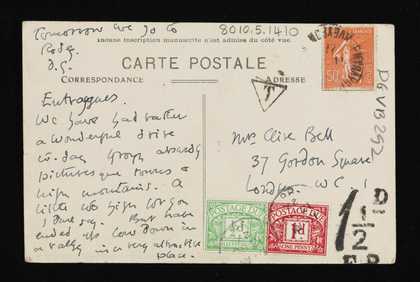 Tomorrow we go to
8010.5.1410
Rodez
D.G.
Aucune inscription manuscrite n'est admise du côté vue.
CARTE POSTALE
CORRESPONDANCE
ADRESSE
Entraygues.
We have had rather
a wonderful drive
to-day through absurdly
picturesque towns &
high mountains. A
little too high for you
I dare say. But have
ended up low down in
a valley in a very attractive
place.
T
50
Mrs Clive Bell
37 Gordon Square
London W C 1
D6VB292
POSTAGE DUE
½d
POSTAGE DUE
1d
ONE PENNY
1½D